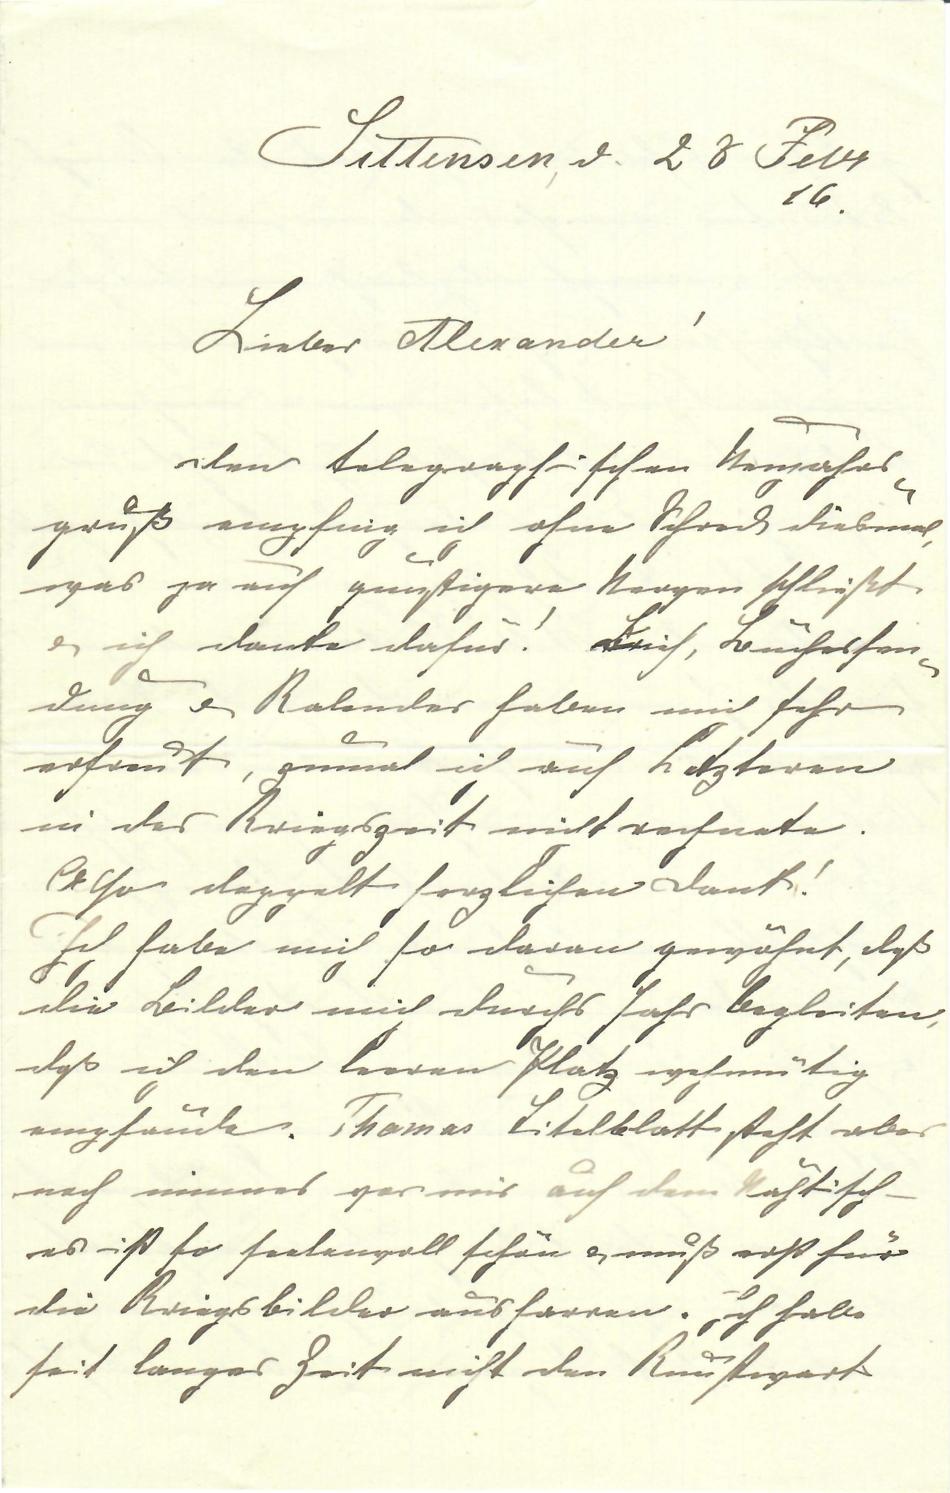 Sittensen, d. 28 Febr
16.
Lieber Alexander!
den telegraphischen Neujahrs-
gruß empfing ich ohne Schreck diesmal,
was ja auf günstigere Nerven schließt
& ich danke dafür! Brief, Büchersen-
dung & Kalender haben mich sehr
erfreut, zumal ich auf Letzteren
in der Kriegszeit nicht rechnete.
Also doppelt herzlichen Dank!
Ich habe mich so daran gewöhnt, daß
die Bilder mich durchs Jahr begleiten,
daß ich den leeren Platz wehmütig
empfände. Thomas Titelblatt steht aber
noch immer vor mir auf dem Nähtisch –
es ist so seelenvoll schön & muß erst für
die Kriegsbilder ausharren. Ich habe
seit langer Zeit nicht den Kunstwart